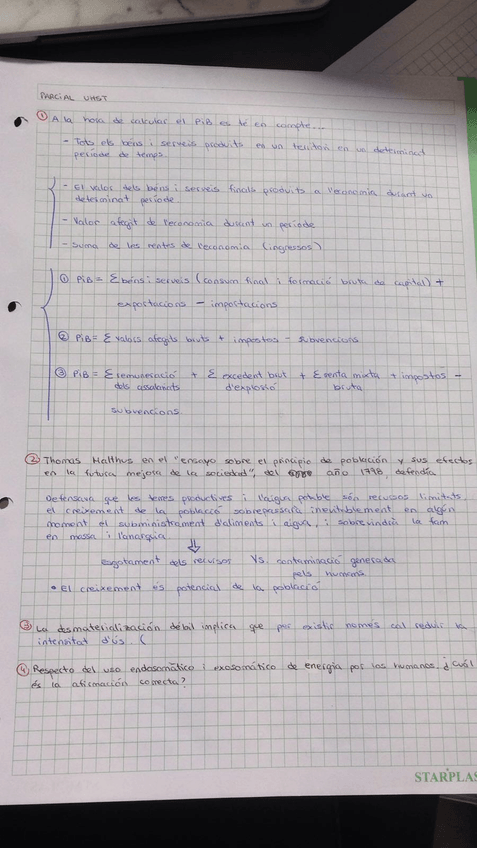 PARCIAL UHST
① A la hora de calcular el PiB es té en compte...
- Tots els béns i serveis produïts en un territori en un determinat
període de temps.
- El valor dels béns i serveis finals produïts a l'economia durant un
determinat període.
- Valor afegit de l'economia durant un període
- Suma de les rentes de l'economia (ingressos)
① PiB = Σ béns i serveis (consum final i formació bruta de capital) +
exportacions - importacions
② PiB = Σ valors afegits bruts + impostos - subvencions
③ PiB = Σ remuneració + Σ excedent brut + Σ renta mixta + impostos -
dels assalariats d'explosió bruta
subvencions.
② Thomas Malthus en el "ensayo sobre el principio de población y sus efectos
en la futura mejora de la sociedad", del año 1798, defendía
Defensava que les terres productives i l'aigua potable són recursos limitats.
el creixement de la població sobrepassarà inevitablement en algún
moment el subministrament d'aliments i aigua, i sobrevindrà la fam
en massa i l'anarquia
⇓
esgotament dels recursos VS. contaminació generada
pels humans
• El creixement és potencial de la població
③ La desmaterialización débil implica que per existir només cal reduir la
intensitat d'ús. (
④ Respecto del uso endosomático i exosomático de energía por los humanos. ¿Cuál
és la afirmación correcta?
STARPLAS